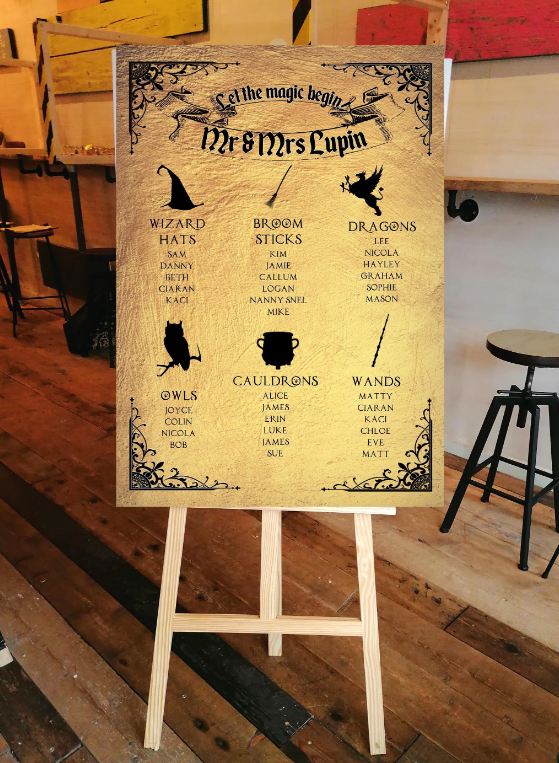 Let the magic begin
Mr & Mrs Lupin
WIZARD
HATS
SAM
DANNY
BETH
CIARAN
KACI
BROOM
STICKS
KIM
JAMIE
CALLUM
LOGAN
NANNY SNEL
MIKE
DRAGONS
LEE
NICOLA
HAYLEY
GRAHAM
SOPHIE
MASON
OWLS
JOYCE
COLIN
NICOLA
BOB
CAULDRONS
ALICE
JAMES
ERIN
LUKE
JAMES
SUE
WANDS
MATTY
CIARAN
KACI
CHLOE
EVE
MATT